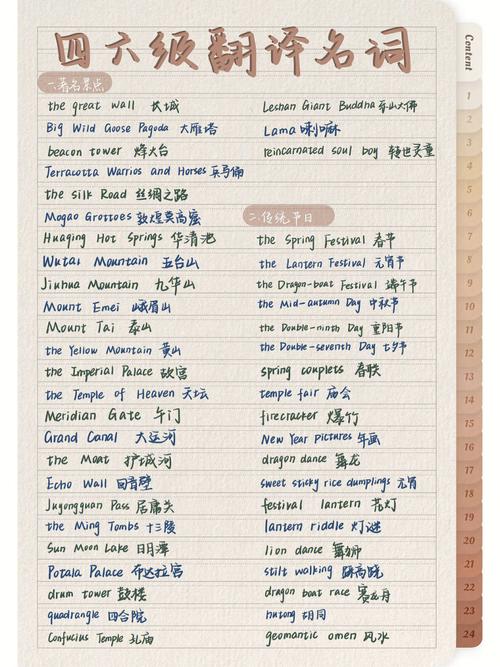 四六级翻译名词
一.著名景点
the great wall 长城
Big Wild Goose Pagoda 大雁塔
beacon tower 烽火台
Terracotta Warrios and Horses 兵马俑
the silk Road 丝绸之路
Mogao Grottoes 敦煌莫高窟
Huaqing Hot Springs 华清池
Wutai Mountain 五台山
Jiuhua Mountain 九华山
Mount Emei 峨眉山
Mount Tai 泰山
the Yellow Mountain 黄山
the Imperial Palace 故宫
the Temple of Heaven 天坛
Meridian Gate 午门
Grand Canal 大运河
the Moat 护城河
Echo Wall 回音壁
Juyongguan Pass 居庸关
the Ming Tombs 十三陵
Sun Moon Lake 日月潭
Potala Palace 布达拉宫
drum tower 鼓楼
quadrangle 四合院
Confucius Temple 孔庙
Leshan Giant Buddha 乐山大佛
Lama 喇嘛
reincarnated soul boy 转世灵童
二.传统节日
the Spring Festival 春节
the Lantern Festival 元宵节
the Dragon-boat Festival 端午节
the Mid-autumn Day 中秋节
the Double-ninth Day 重阳节
the Double-seventh Day 七夕节
spring couplets 春联
temple fair 庙会
firecracker 爆竹
New Year pictures 年画
dragon dance 舞龙
sweet sticky rice dumplings 元宵
festival lantern 花灯
lantern riddle 灯谜
lion dance 舞狮
stilt walking 踩高跷
dragon boat race 赛龙舟
hutong 胡同
geomantic omen 风水
Content
1
2
3
4
5
6
7
8
9
10
11
12
13
14
15
16
17
18
19
20
21
22
23
24